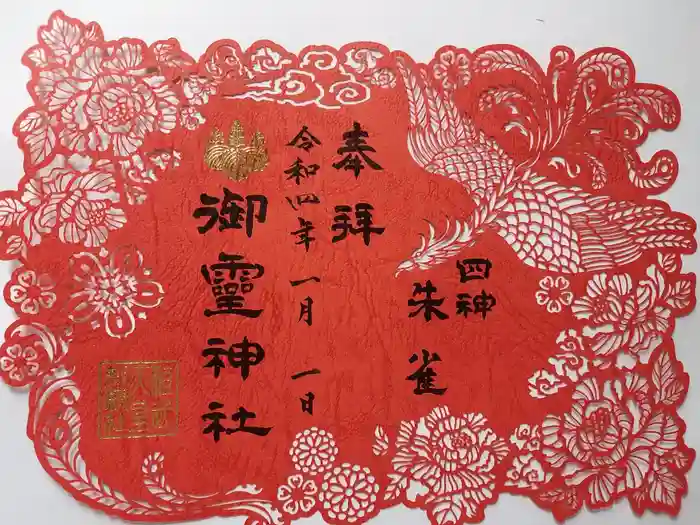 奉拝
四神
朱雀
令和四年一月一日
御霊神社